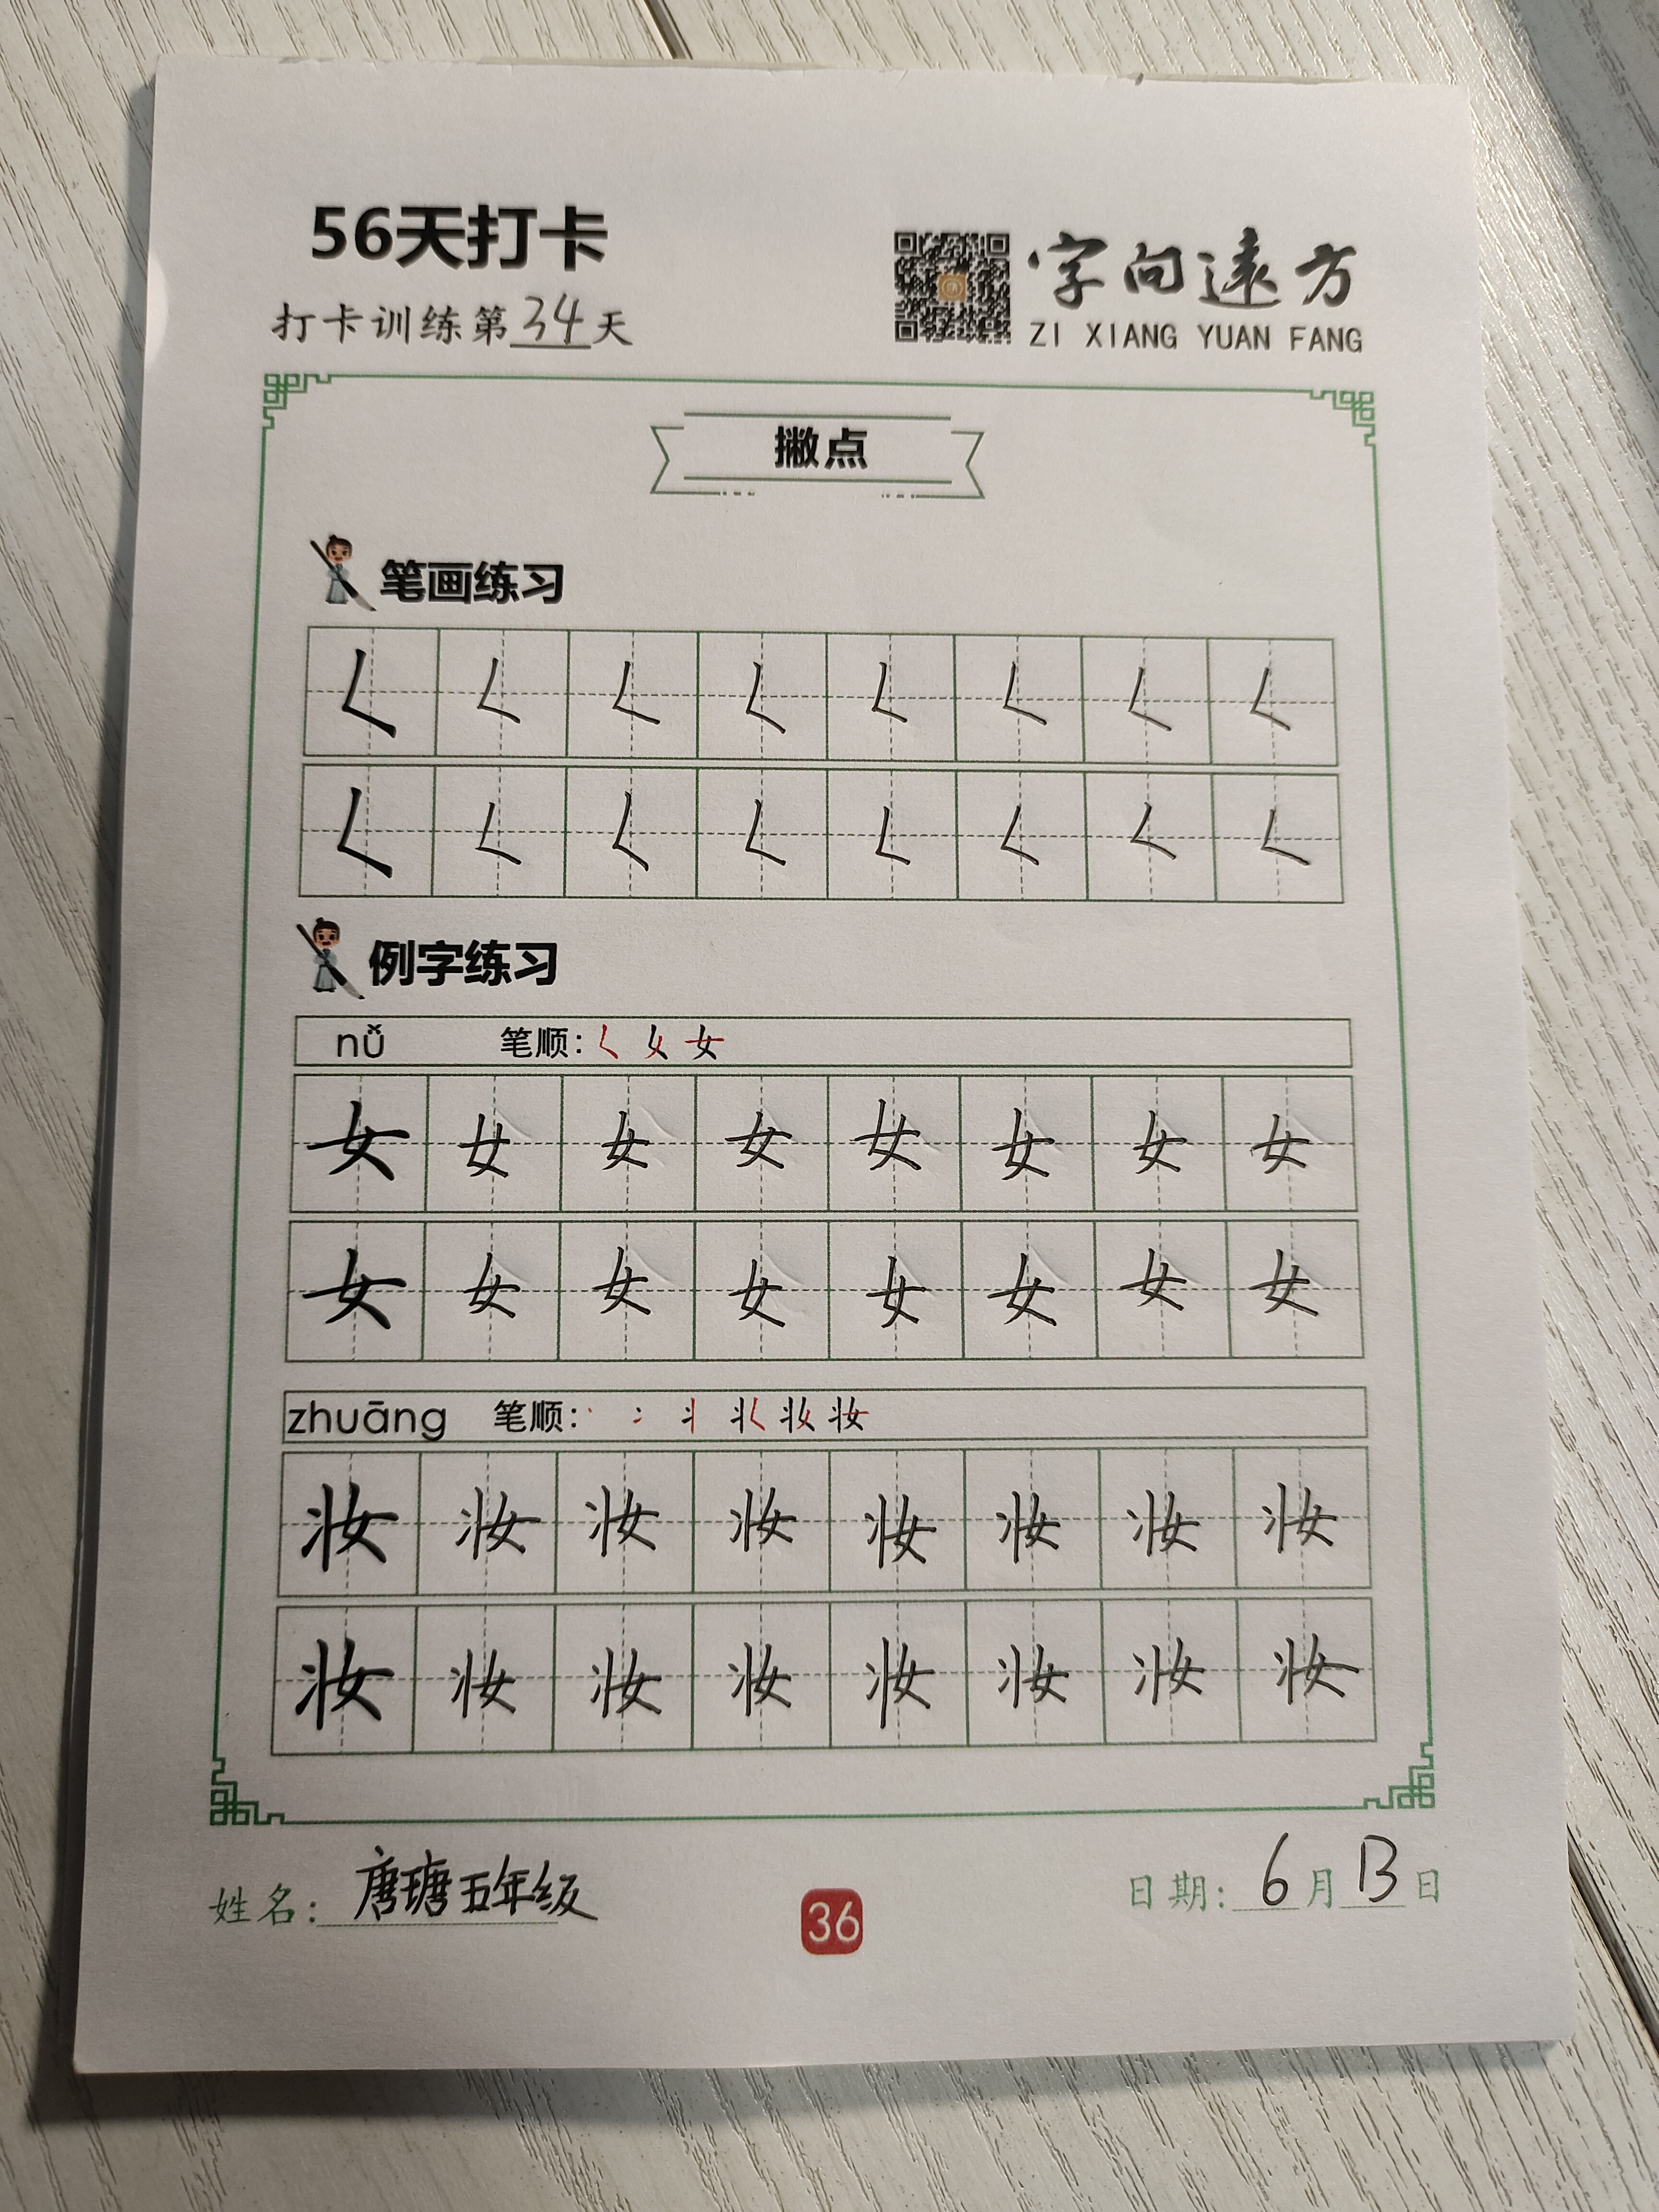 56天打卡
字向遠方
打卡训练第34天
ZI XIANG YUAN FANG
撇点
笔画练习
𡿨 𡿨 𡿨 𡿨 𡿨 𡿨 𡿨 𡿨
𡿨 𡿨 𡿨 𡿨 𡿨 𡿨 𡿨 𡿨
例字练习
nǚ 笔顺: 𡿨 女 女
女 女 女 女 女 女 女 女
女 女 女 女 女 女 女 女
zhuāng 笔顺: 丶 冫 丬 妆 妆 妆
妆 妆 妆 妆 妆 妆 妆 妆
妆 妆 妆 妆 妆 妆 妆 妆
姓名: 唐瑭五年级
36
日期: 6月13日